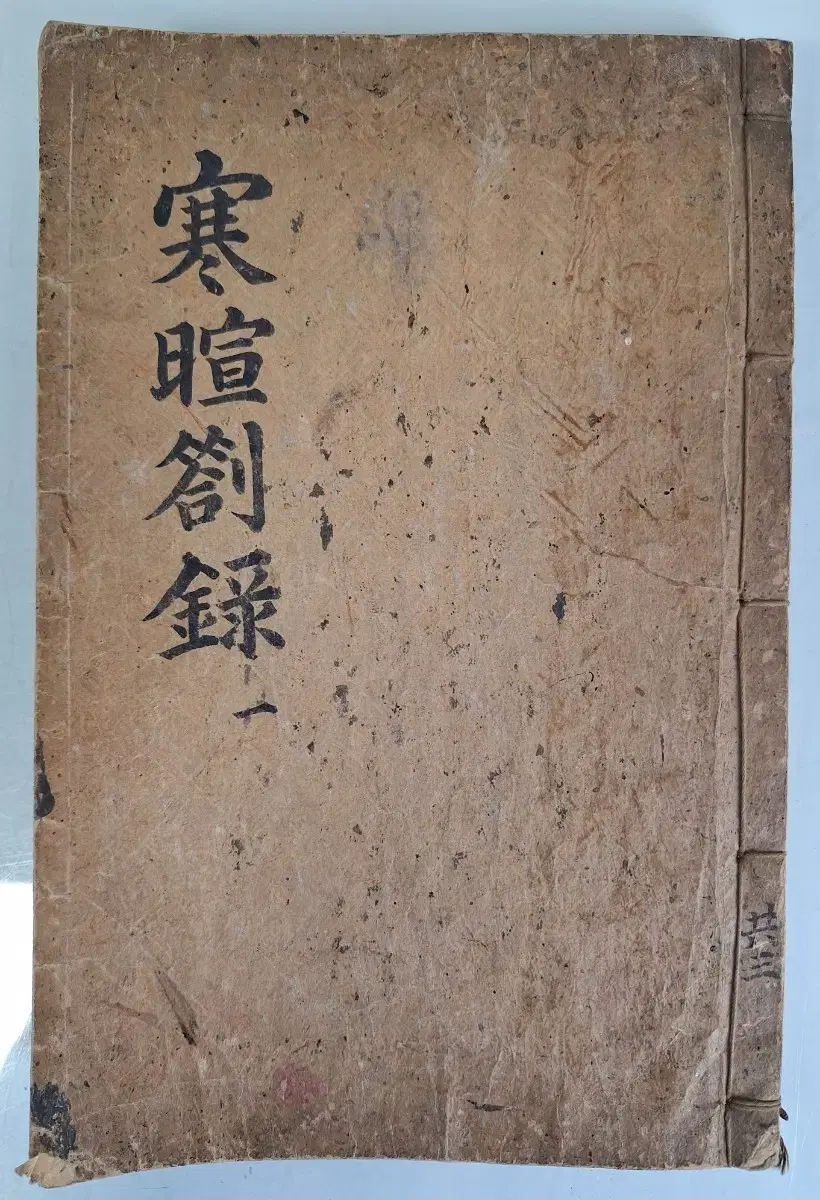 寒暄劄錄
一
共三